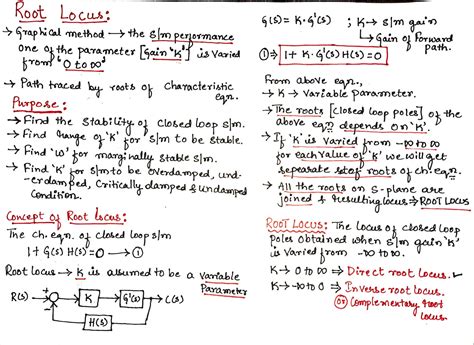 Root Locus:
→ Graphical method → the s/m performance
one of the parameter [Gain 'K'] is varied
from '0 to ∞'
→ Path traced by roots of characteristic
eqn.
Purpose:
→ Find the stability of closed loop s/m.
→ Find range of 'K' for s/m to be stable.
→ Find 'ω' for marginally stable s/m.
→ Find 'K' for s/m to be overdamped, und-
erdamped, Critically damped & Undamped
Condition.
Concept of Root locus:
The ch. eqn. of closed loop s/m
1 + G(s) H(s) = 0 → ①
Root locus → K is assumed to be a variable
Parameter
R(s) → + - K G'(s) → C(s)
H(s)
G(s) = K · G'(s) ; K → s/m gain
↳ Gain of Forward
path.
① ⇒ 1 + K · G'(s) H(s) = 0
From above eqn.,
→ K → Variable parameter.
→ The roots [closed loop poles] of the
above eqn depends on 'K'.
→ If 'K' is varied from -∞ to ∞
for each value of 'K' we will get
separate set of roots of ch. eqn.
→ All the roots on S-plane are
joined & resulting locus ⇒ ROOT LOCUS
ROOT LOCUS: The locus of closed loop
Poles obtained when s/m gain 'K'
is varied from -∞ to ∞.
K → 0 to ∞ ⇒ Direct root locus. ✓
K → -∞ to 0 ⇒ Inverse root locus.
(or) Complementary root
locus.